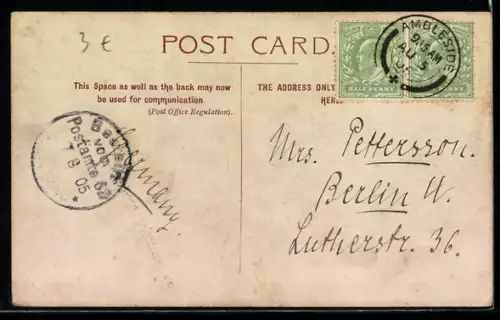 3 €
POST CARD.
This Space as well as the back may now
be used for communication.
(Post Office Regulation).
THE ADDRESS ONLY
HERE.
HALF PENNY
PENNY
AMBLESIDE
9.15AM
AU 5
Bestellt
vom
Postamte 62
7 8 05
Germany.
Mrs. Pettersson.
Berlin W.
Lutherstr. 36.